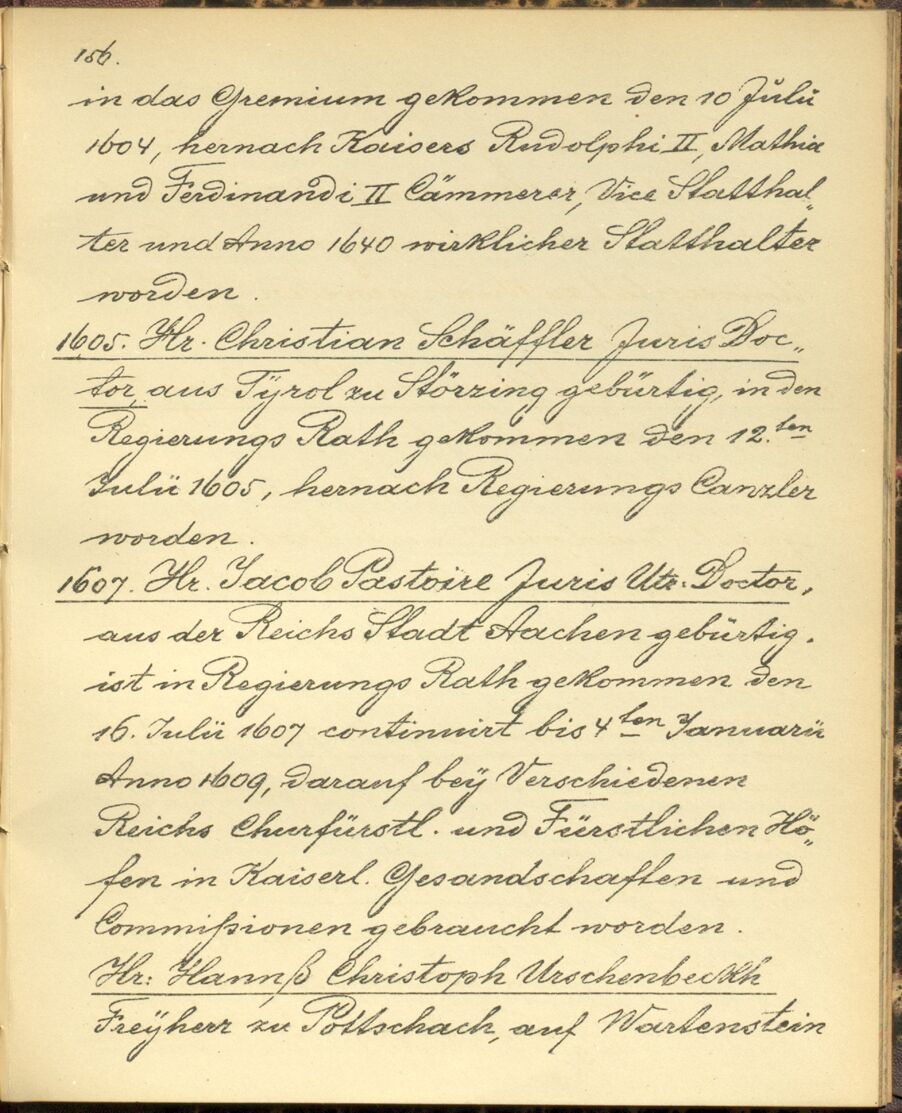 156.
in das Gremium gekommen den 10 Julii
1604, hernach Kaisers Rudolphi II, Mathia
und Ferdinandi II Cämmerer, Vice Statthal„
ter und Anno 1640 wirklicher Statthalter
worden.
1605. Hr. Christian Schäffler Juris Doc„
tor, aus Tÿrol zu Störzing gebürtig, in den
Regierungs Rath gekommen den 12.ten
Julii 1605, hernach Regierungs Canzler
worden.
1607. Hr. Jacob Pastoire Juris Utr. Doctor,
aus der Reichs Stadt Aachen gebürtig.
ist in Regierungs Rath gekommen den
16. Julii 1607 continuirt bis 4ten Januarii
Anno 1609, darauf beÿ Verschiedenen
Reichs Churfürstl. und Fürstlichen Hö„
fen in Kaiserl. Gesandschaften und
Commißionen gebraucht worden.
Hr: Hannß Christoph Urschenbeckh
Freÿherr zu Pottschach, auf Wartenstein